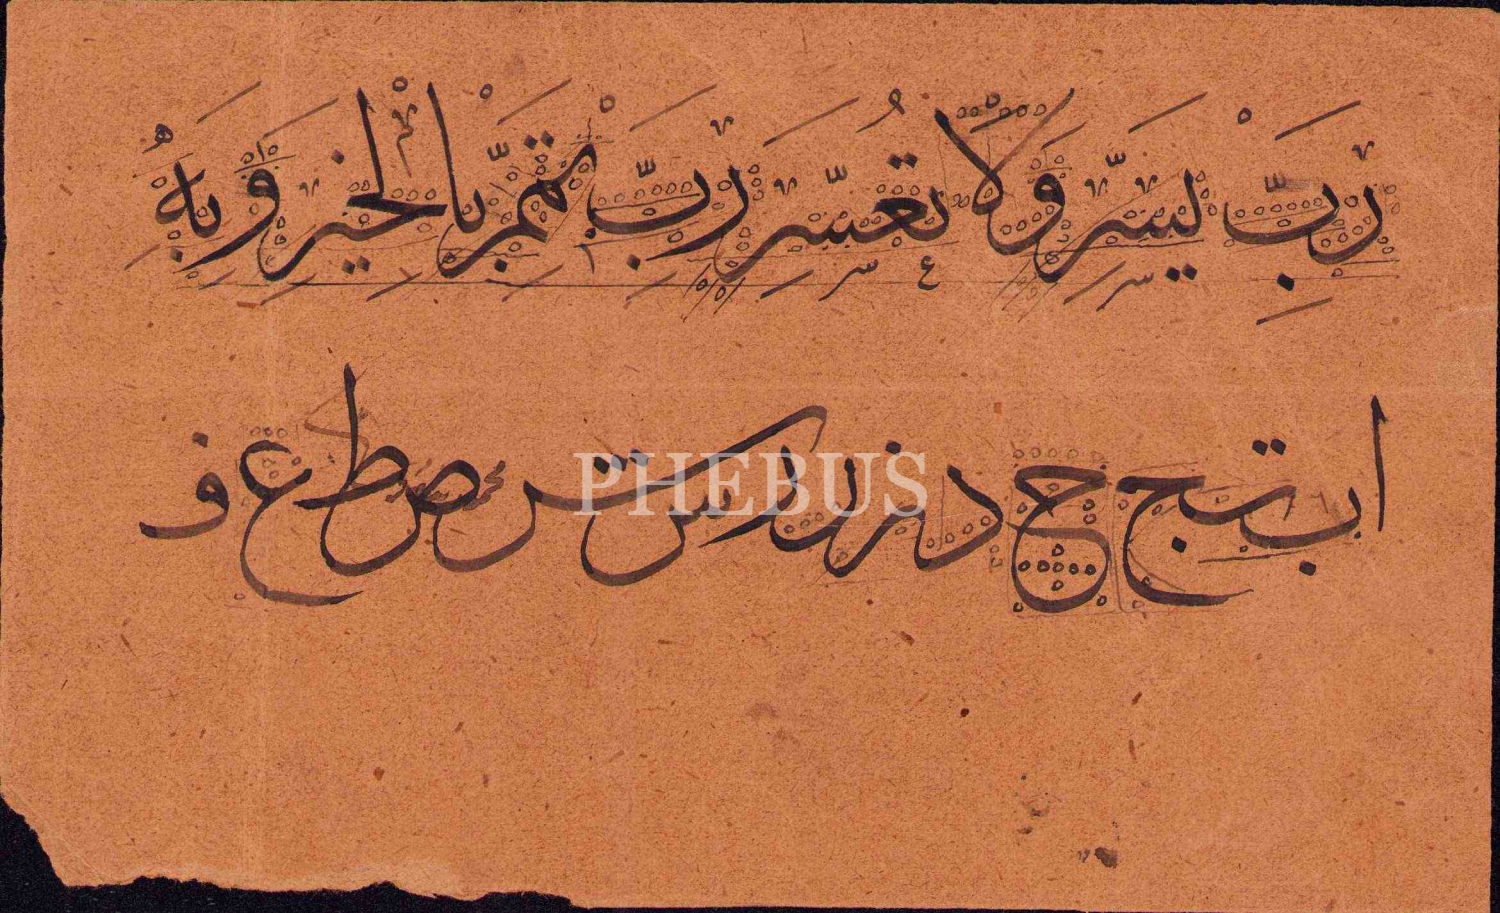 رَبِّ يَسِّرْ وَلَا تُعَسِّرْ رَبِّ تَمِّمْ بِالْخَيْرِ وَبِهِ
ا ب ت ج ح د ز ر س ص ط ع ف
PHEBUS